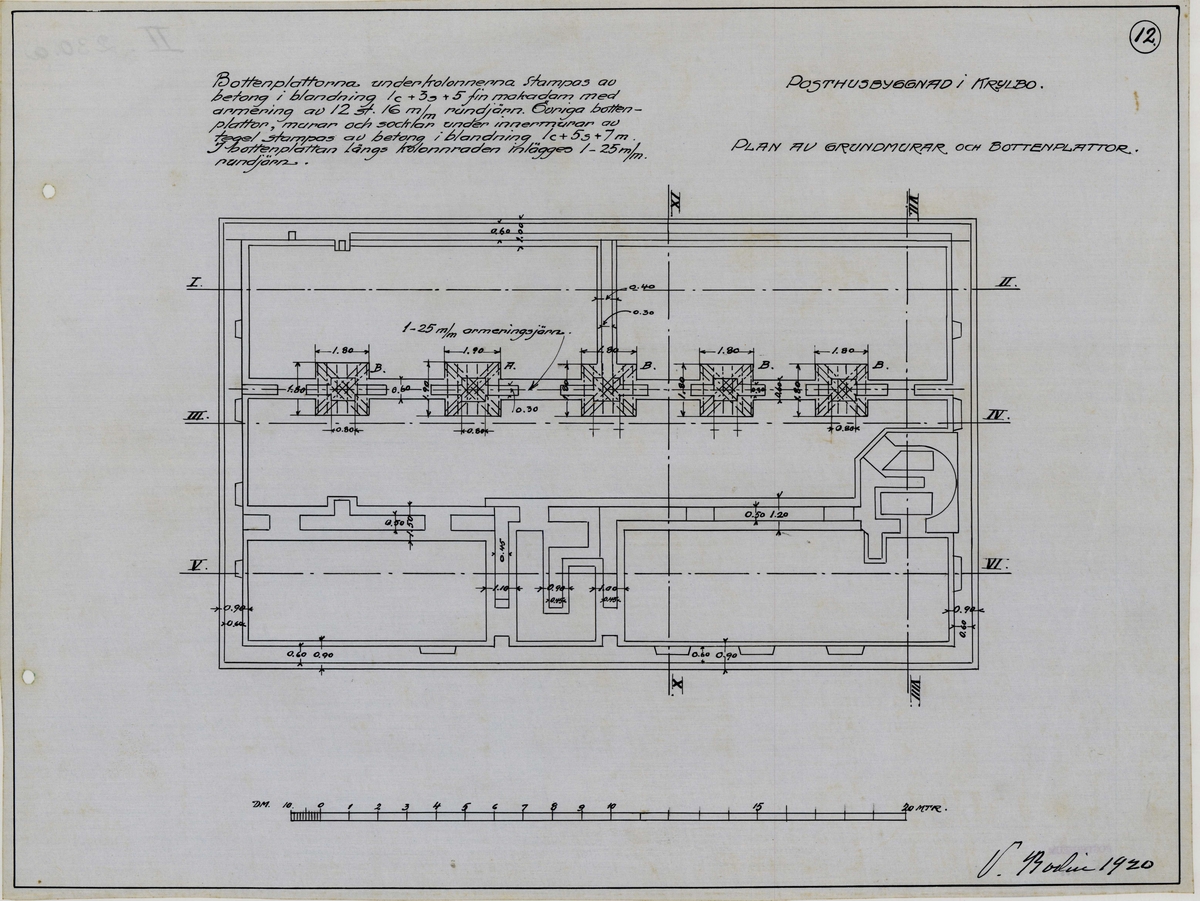 12.
Bottenplattorna under kolonnerna Stampas av
betong i blandning 1c+3s+5 fin makadam med
armering av 12 st. 16 m/m rundjärn. Övriga botten-
plattor, murar och socklar under innermurar av
tegel stampas av betong i blandning 1c+5s+7m.
I bottenplattan långs kolonnraden inlägges 1-25 m/m.
rundjärn.
POSTHUSBYGGNAD i KRYLBO.
PLAN AV GRUNDMURAR OCH BOTTENPLATTOR.
IX. VII.
0.60 1.00
I. II.
0.40
0.30
1-25 m/m armeringsjärn.
1.80 1.90 1.80 1.80 1.80
B. A. B. B. B.
1.80 0.60 1.90 1.80 1.80 0.60 1.80
0.30
III. IV.
0.80 0.80 0.80
0.50 1.50 0.50 1.20
0.45
V. VI.
1.10 0.90 1.00
0.45 0.45
0.90 0.90
0.60 0.60
0.60 0.90 0.60 0.90
X. VIII.
DM. 10 0 1 2 3 4 5 6 7 8 9 10 15 20 MTR.
V. Bodin 1920